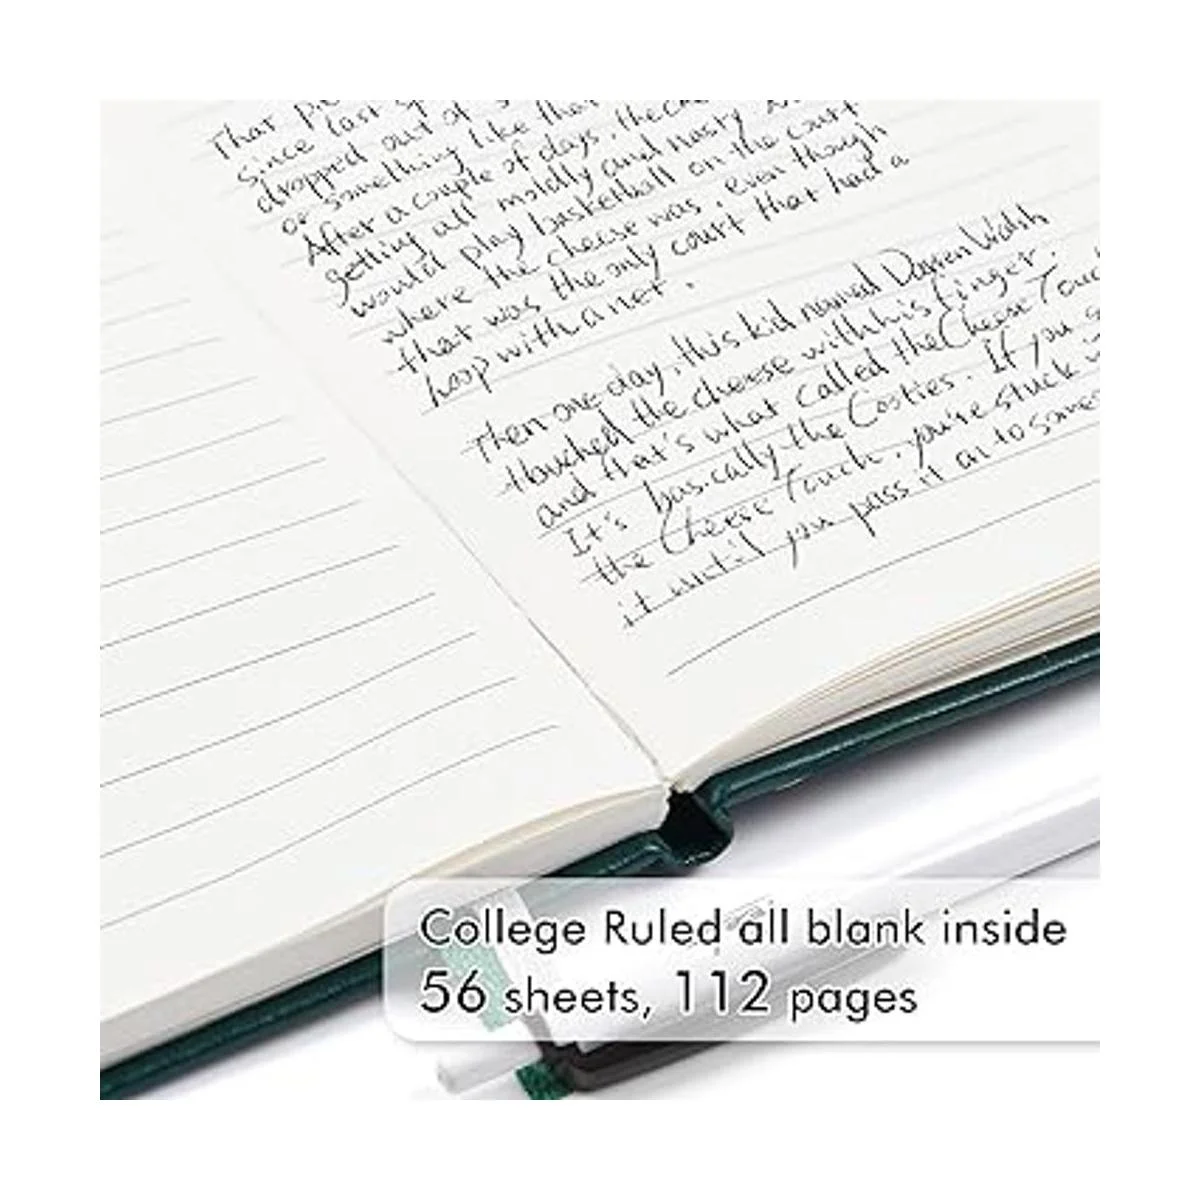 That
since last
dropped out of
or something like that
After a couple of days, the
getting all moldly and nasty
would play basketball on the court
where the cheese was, even though
that was the only court that had a
hoop with a net.
Then one day, this kid named Darren Walsh
touched the cheese with his finger.
and that's what called the Cheese Touch
It's basically the Cooties. If you
the Cheese Touch, you're stuck
it until you pass it on to
College Ruled all blank inside
56 sheets, 112 pages